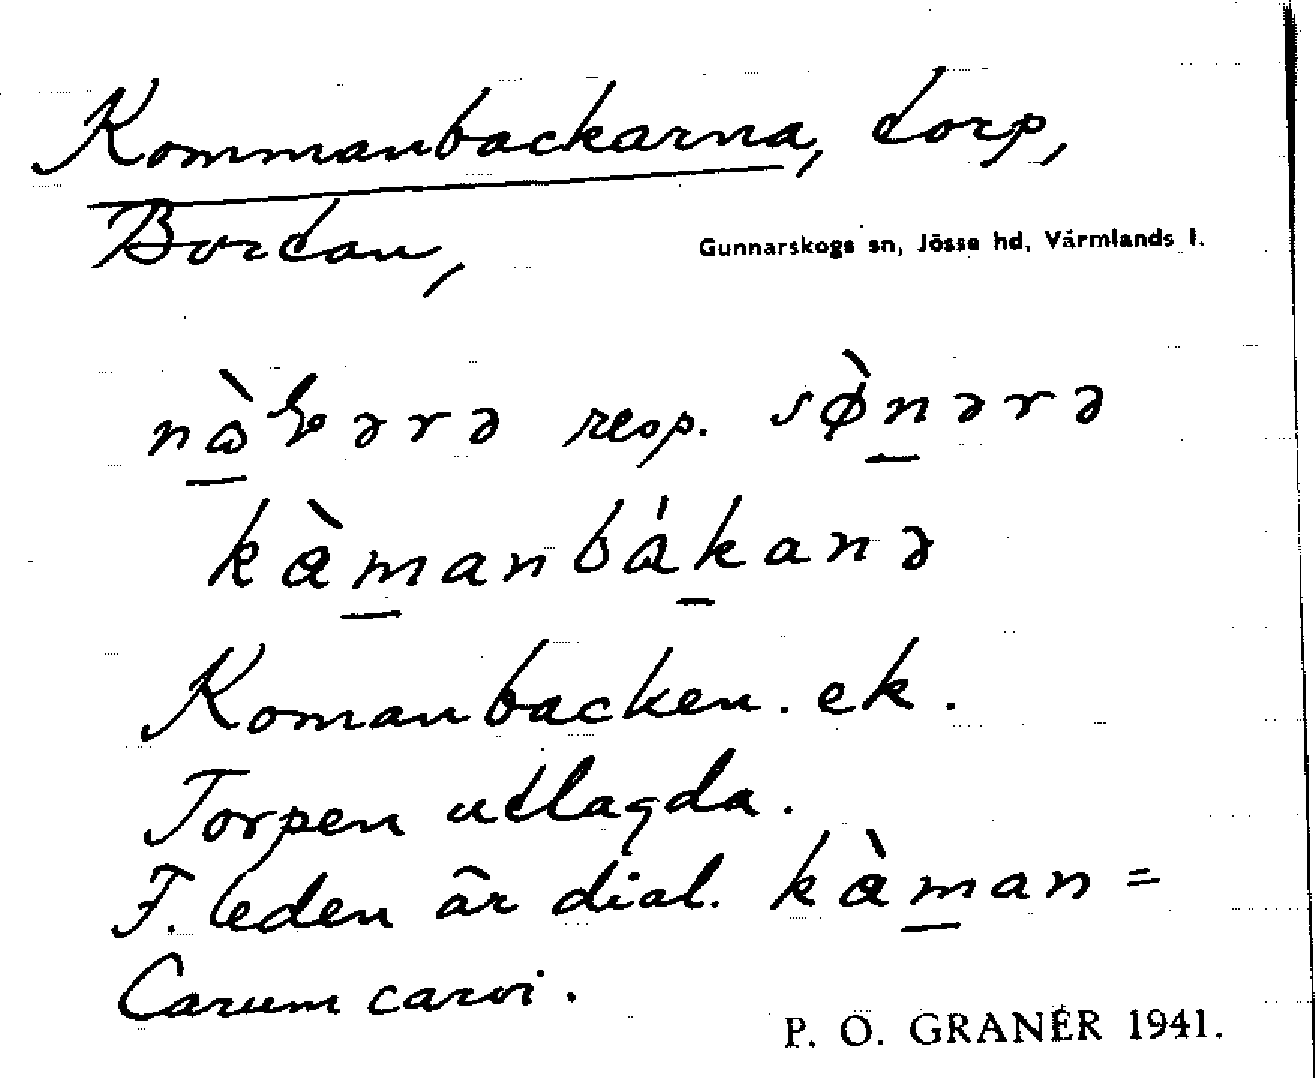 Kommanbackarna, torp,
Bortan,
Gunnarskogs sn, Jösse hd, Värmlands l.
resp. sø̀nərə
kàmanbákanə
Komanbacken. ek.
Torpen utlagda.
F. leden är dial. kàman =
Carum carvi.
P. O. GRANÉR 1941.